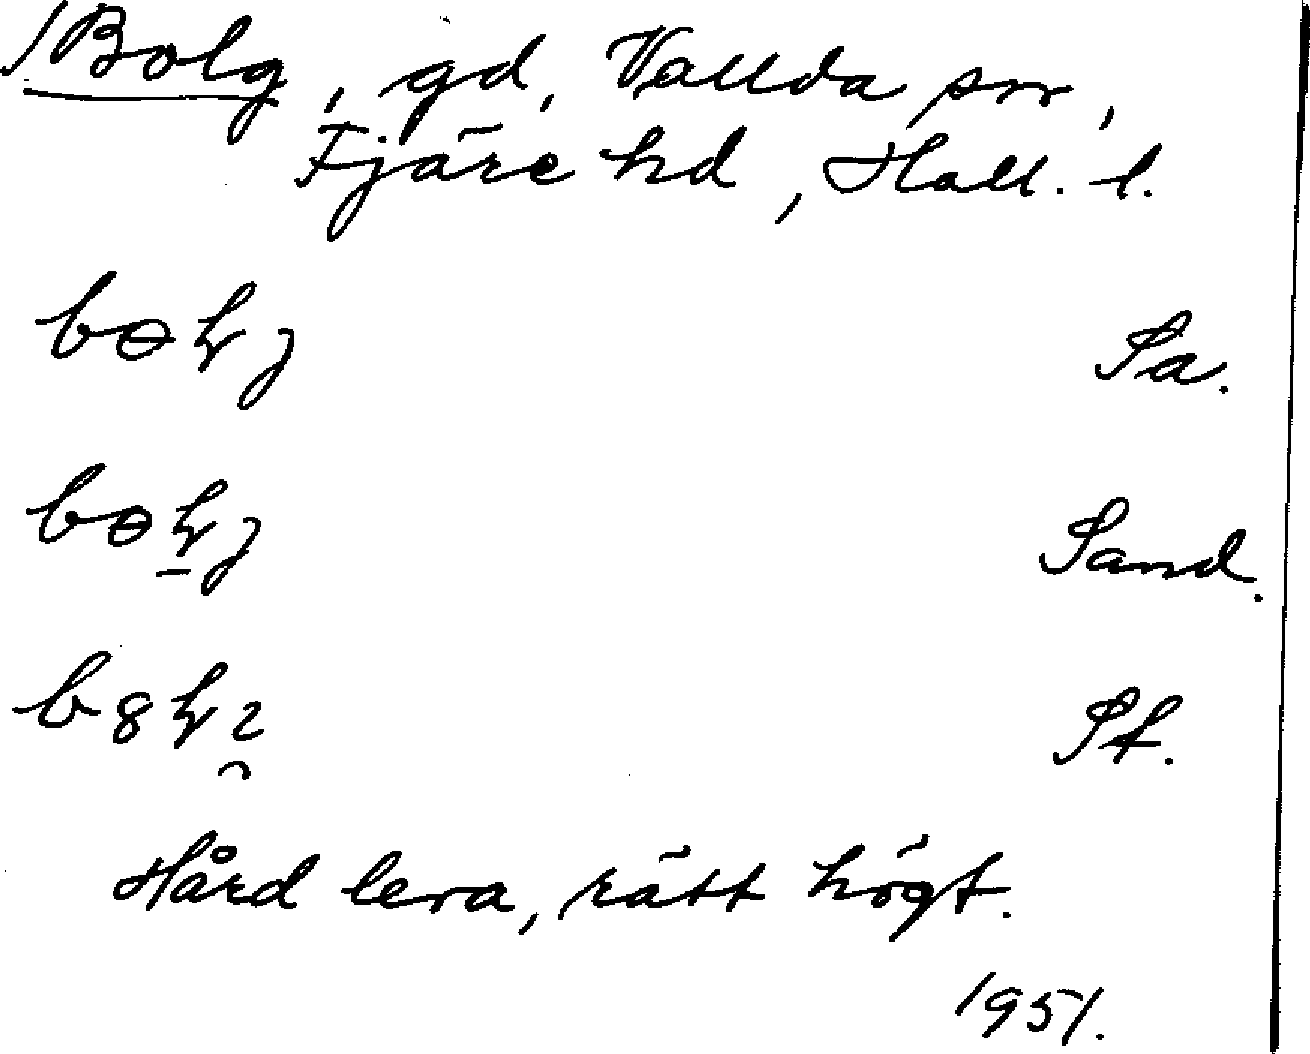 /Bolg, gd, Vallda sn,
Fjäre hd, Hall. l.
Sa.
Sand.
St.
Hård lera, rätt högt.
1951.